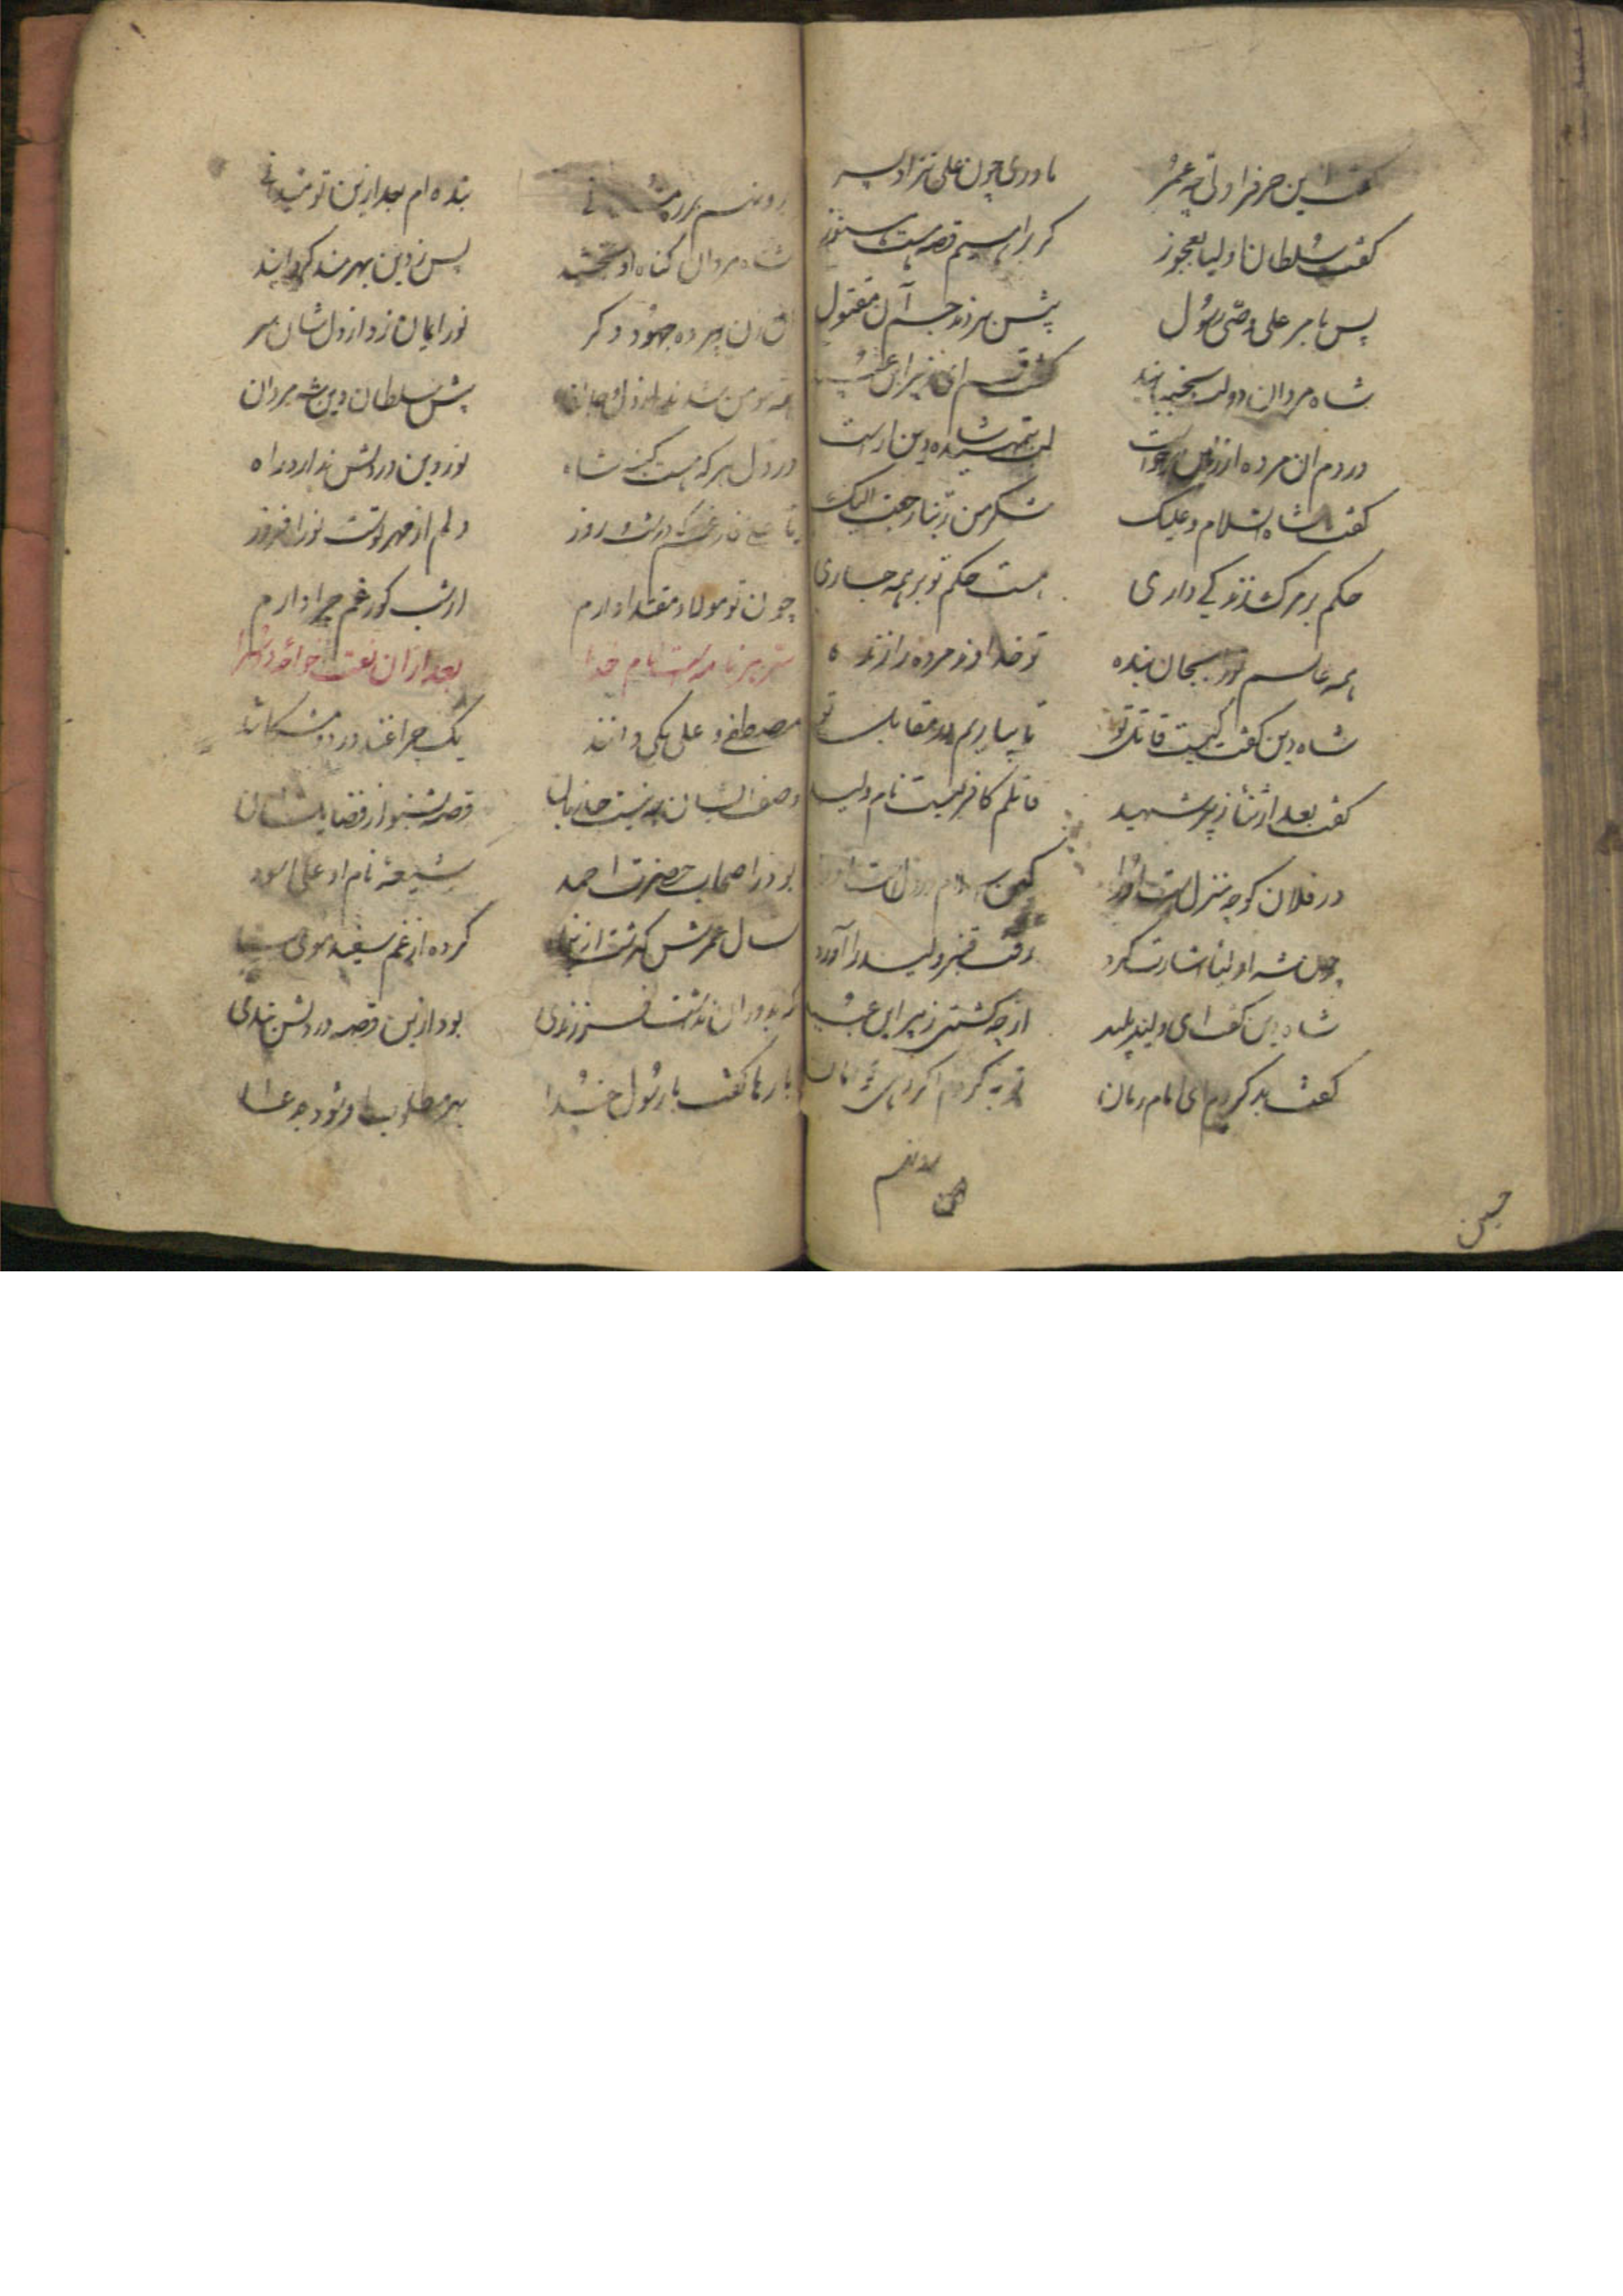 گفت این حرف و اولی چه عمر مادری چون علی نزاد پسر
گفت سلطان اولیا بعجوز کز براهیم قصه هست هنوز
پس بامر علی وصی رسول پیش بردند جسم آن مقتول
شاه مردان دو لب بجنبانید گفت قم ای زپیر این
در دم آن مرده از زمین برخاست لب شاه دین آراست
گفت شاها سلام و علیک شکر من ربنا رجعت الیک
حکم بر سرکشندگی داری هست حکم تو بر همه جاری
همه عالم تو را بجان بنده تو خداوند مرده را زنده
شاه دین گفت کیست قاتل تو تا بیاریم در مقابل تو
گفت بعد از ثنا زپیر شهید قاتلم کافریست نام ولید
در فلان کوچه منزلست او را کین در دلست او را
چون شه اولیا اشارت کرد رفت قنبر ولید را آورد
شاه دین گفت ای ولید پلید از چه کشتی زپیر ابن
گفت بد کردم ای امام زمان توبه کردم اگر دهی تو امان
رو نهم
حسین
رو نهم بر در مسلمانی بنده ام بعد ازین تو میدانی
شاه مردان گناه او بخشید پس ز دین بهرمند گردانید
آن زن پیر و ده جهود دگر نور ایمان زد از دل شان سر
همه مومن شدند از دل و جان پیش سلطان دین شه مردان
در دل هر که هست کینه شاه نور دین در دلش ندارد راه
یا علی فارغم شب و روز دلم از مهر توست نور افروز
چون تو مولا و مقتدا دارم از شب گور غم چرا دارم
سر هر نامه است نام خدا بعد از آن نعت خواجه دوسرا
مصطفی و علی یکی دانند یک چراغند در دو مشکاتند
وصف ایشان چه نیست حد زبان قصه بشنو از فضایل شان
بود ز اصحاب حضرت احمد شیعه نام او علی اسود
سال عمرش گذشت از کرده از غم سفید موی سیاه
که بدوران نداشت فرزندی بود ازین قصه در دلش بندی
بارها گفت با رسول خدا بهر مطلوب او نمود دعا